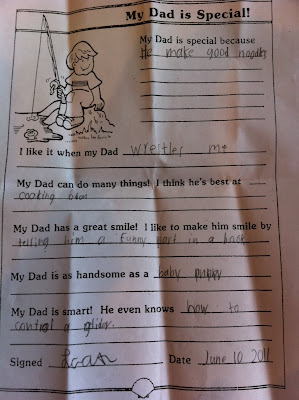 My Dad is Special!
My Dad is special because
He make good
I like it when my Dad wrestler me
My Dad can do many things! I think he's best at
cooking
My Dad has a great smile! I like to make him smile by
telling him a funny part in a book
My Dad is as handsome as a baby puppy
My Dad is smart! He even knows how to
control a glider.
Signed Date June 10 2011